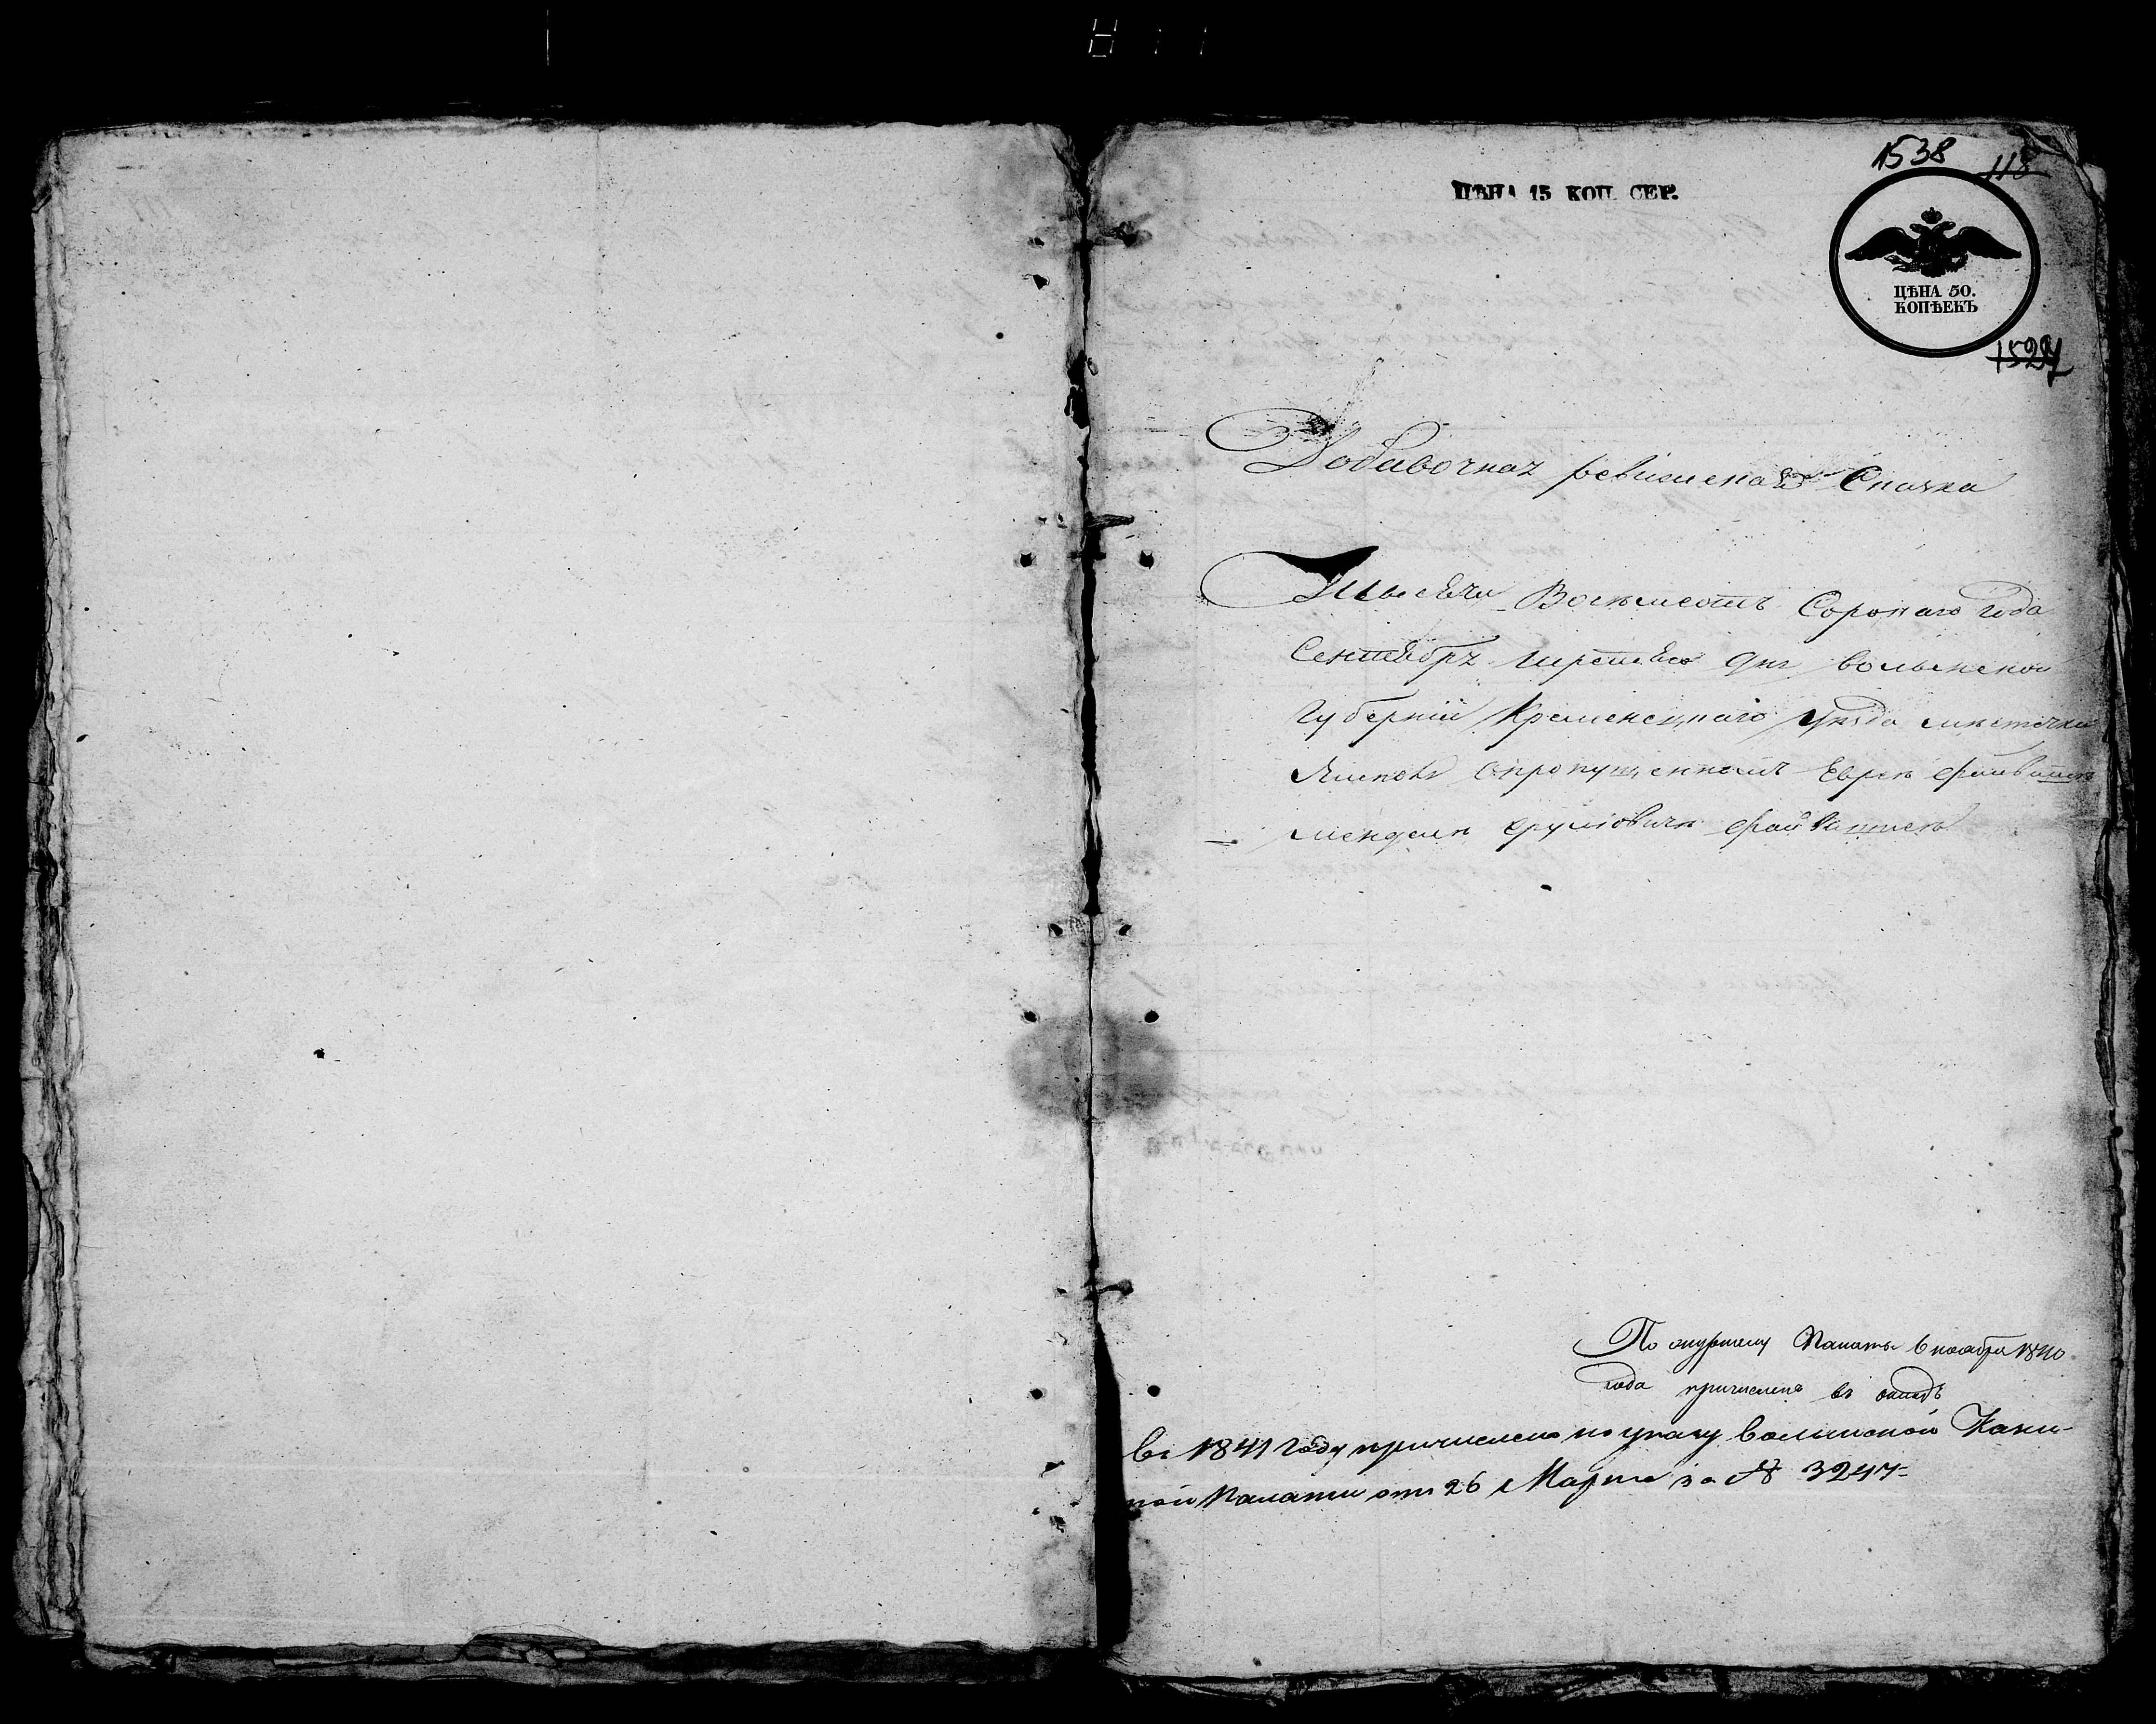 1538
118
ЦѢНА 15 КОП. СЕР.
ЦѢНА 50.
КОПѢЕКЪ
1524
Добавочная ревизская Сказка
Тысяча Восемсотъ Сорокаго года
Сентября дня волынской
Губерніи Кременецкаго уезда местечка
Опропущенномъ Еврее
мендели
По журналу Палаты 6 ноября 1840
года причислено въ окладъ
въ 1841 году причислено по указу волынской Казен-
ной Палаты отъ 26 Марта за № 3247